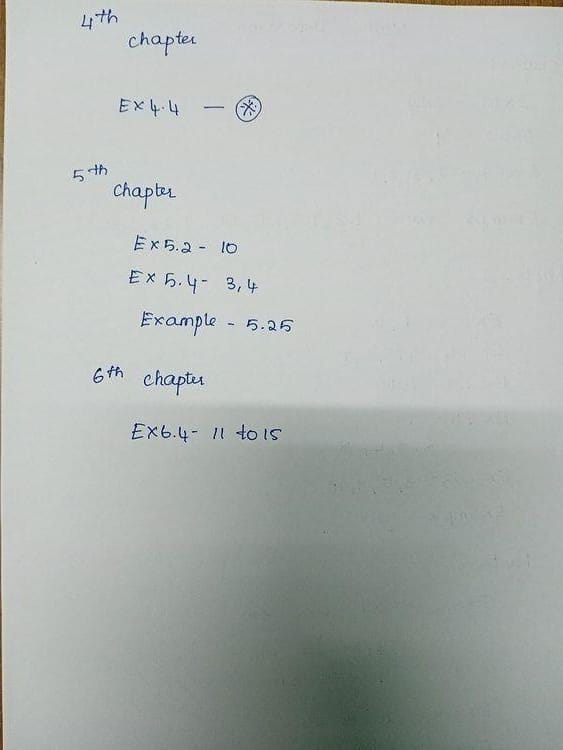 4th
chapter
Ex 4.4 — ⊛
5th
chapter
Ex 5.2 - 10
Ex 5.4 - 3,4
Example - 5.25
6th chapter
Ex 6.4 - 11 to 15